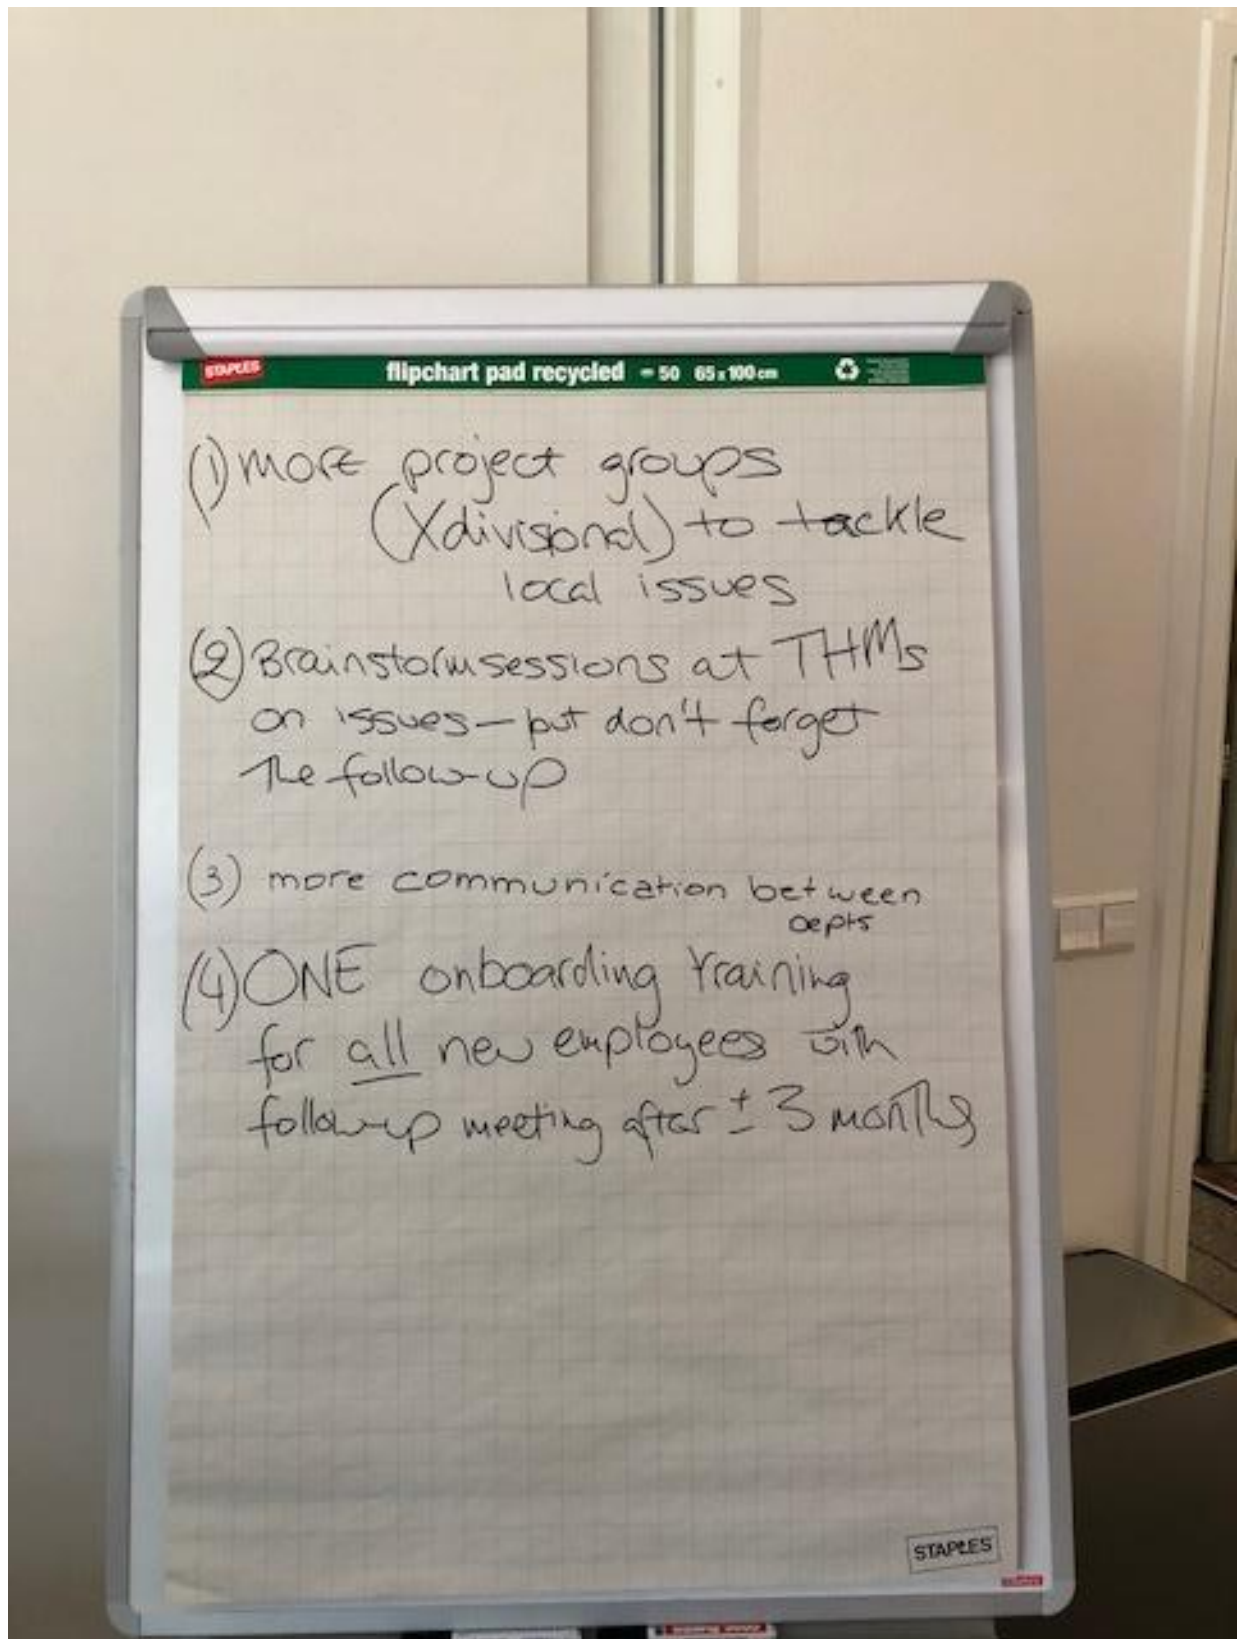 STAPLES flipchart pad recycled = 50 65 x 100 cm
(1) more project groups
(Xdivisional) to tackle
local issues
(2) Brainstormsessions at THMs
on issues - but don't forget
The follow-up
(3) more communication between
depts
(4) ONE onboarding training
for all new employees with
follow-up meeting after ± 3 months
STAPLES